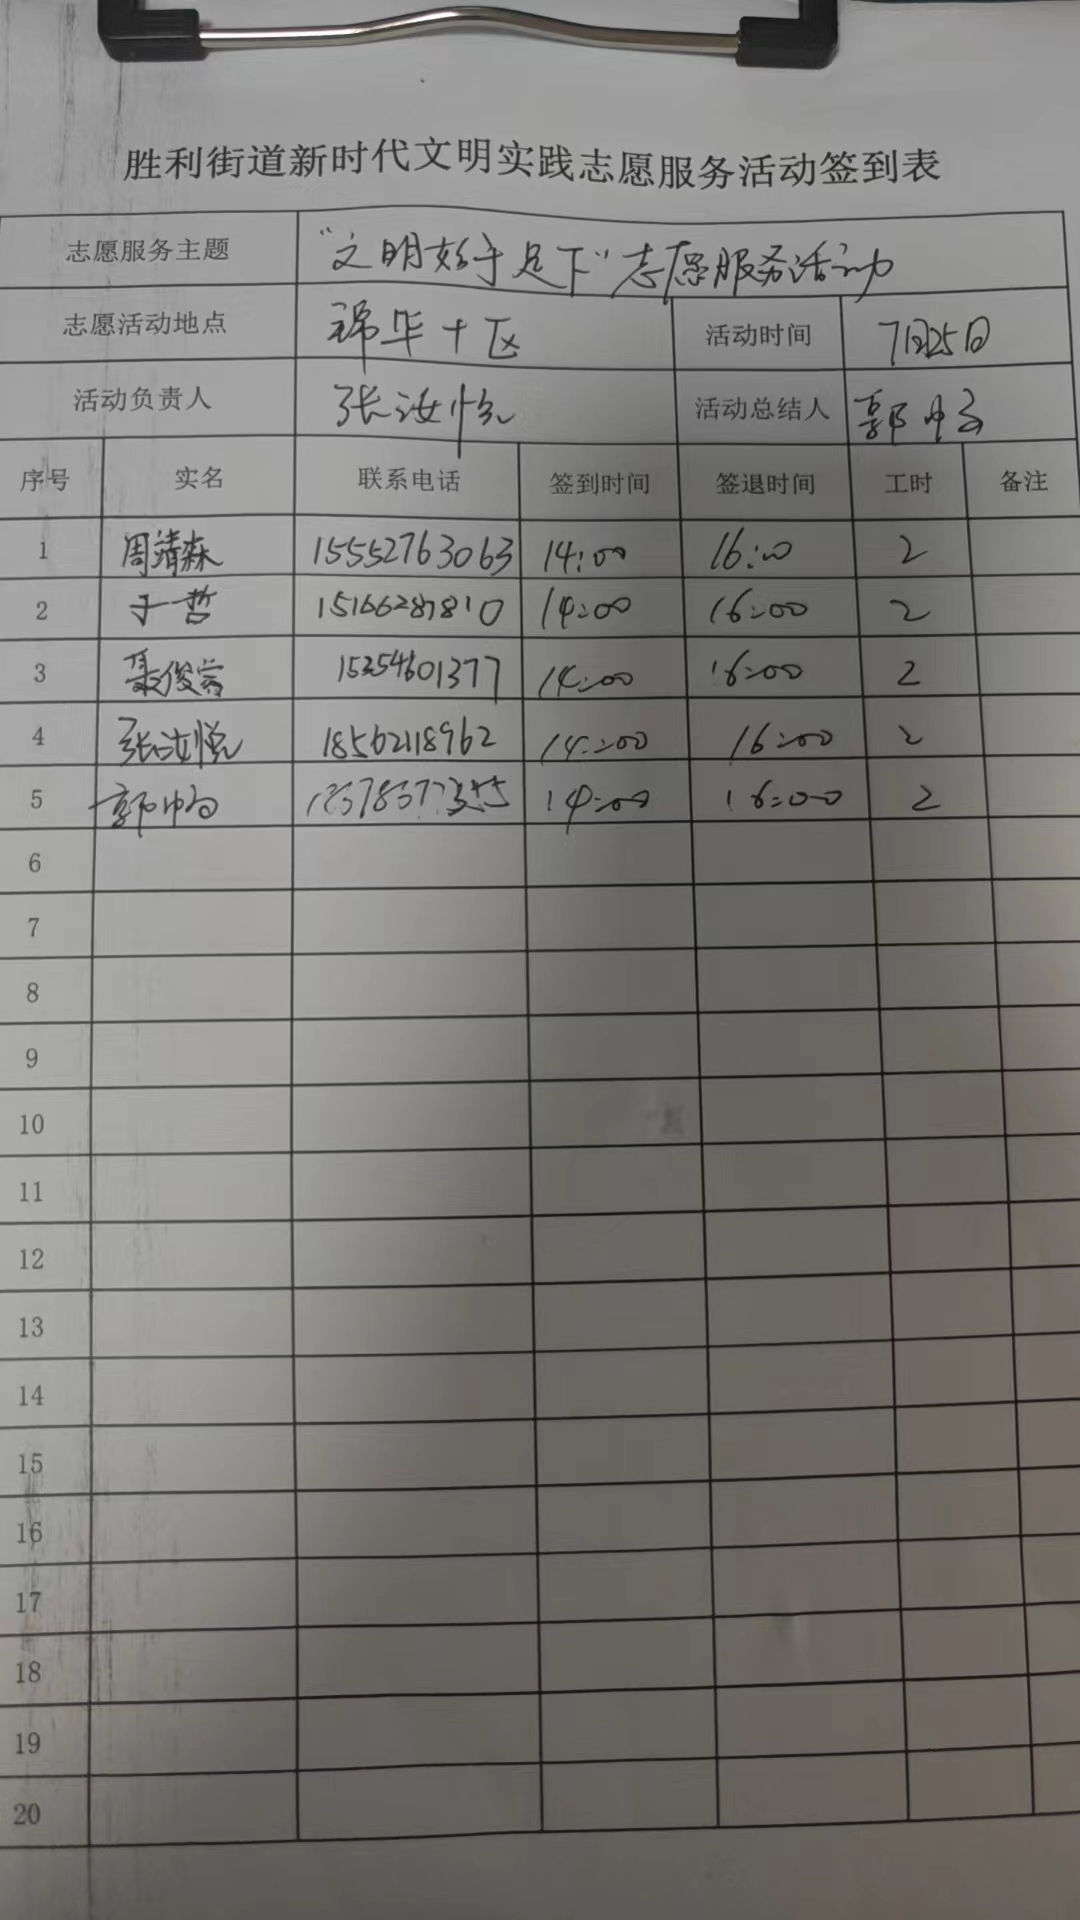 胜利街道新时代文明实践志愿服务活动签到表
志愿服务主题 “文明始于足下”志愿服务活动
志愿活动地点 锦华十区 活动时间 7月25日
活动负责人 张汝悦 活动总结人 郭
序号 实名 联系电话 签到时间 签退时间 工时 备注
1 周靖森 15552763063 14:00 16:00 2
2 于哲 15166287810 14:00 16:00 2
3 聂俊 15254601377 14:00 16:00 2
4 张汝悦 18562118962 14:00 16:00 2
5 郭 14:00 16:00 2
6
7
8
9
10
11
12
13
14
15
16
17
18
19
20